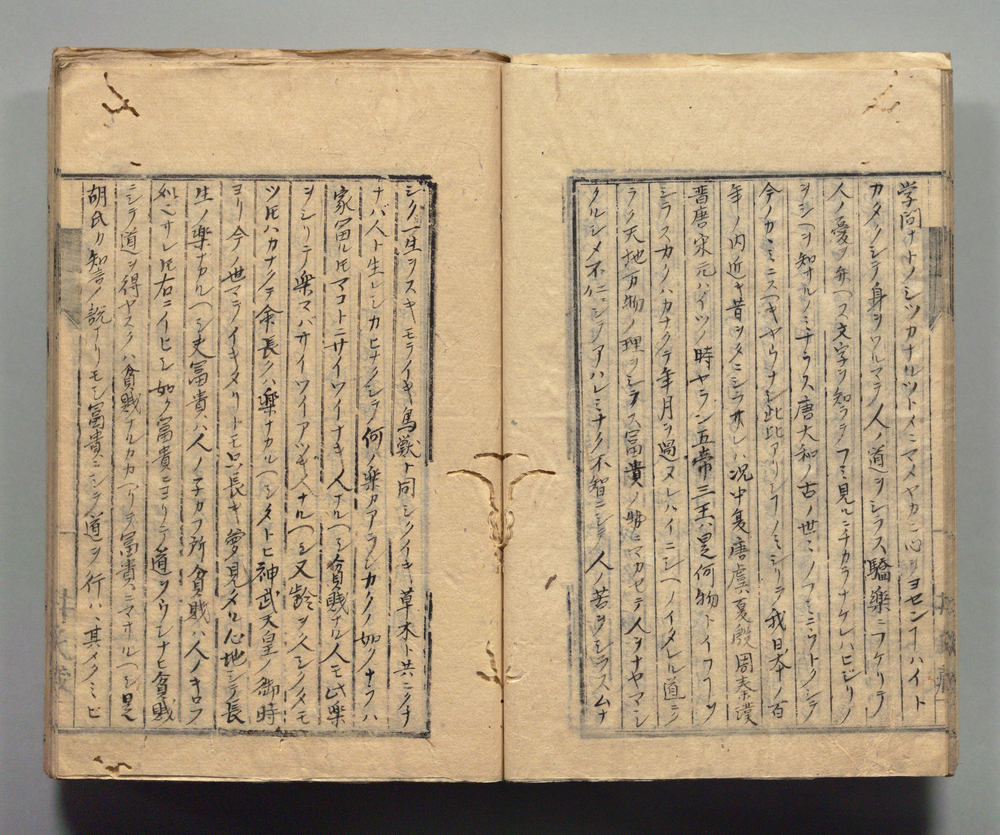 学問ナトノシツカナルツトメニマメヤカニ心ヲヨセンヿハイト
カタクシテ身ヲワルマテ人ノ道ヲシラス驕楽ニフケリテ
人ノ憂ヲ弁ヘス文字ヲ知ラテフミ見ルニチカラナケレハヒジリノ
ヲシヘヲ知サルノミナラス唐大和ノ古ノ世ミノフミニウトクシテ
今ノカミニスヘキヤウナシ此比アリシヿノミシリテ我日本ノ百
年ノ内近キ昔ヲタニシラサレハ況中夏唐虞夏殷周秦漢
晋唐宋元ハイツノ時ヤラン五帝三王ハ是何物トイフヿヲ
シラスカクハカナクテ年月ヲ過ヌレハイニシヘノイタレル道ニ
ラク天地万物ノ理ヲシラス富貴ノ勢ニマカセテ人ヲナヤマシ
クルシメ不仁ニシテアハレミナク不智ニシテ人ノ苦ヲシラスムナ
シク一生ヲスキモライキ鳥獣ト同シクイキ草木ト共ニクチ
ナバ人ト生レシカヒナクシテ何ノ楽カアランカクノ如クナラハ
家冨ル𪜈マコトニサイワイナキ人ナルヘシ貧賤ナル人モ此楽
ヲシリテ楽マバサイワイアツキ人ナルヘシ又齢ヲ人シクタモ
ツ𪜈ハカナクテ命長クハ楽ナカルヘシタトヒ神武天皇ノ御時
ヨリ今ノ世マライキタリトモ只長キ夢見タル心地シテ長
生ノ楽ナカルヘシ夫富貴ハ人ノ子カフ所貧賤ハ人ノキロフ
処ヘサレ𪜈右ニイヒシ如ク富貴ニヨリテ道ヲウシナヒ貧賤
ニシテ道ヲ得ヤスクハ貧賤ナルカカヘリテ富貴ニマサルヘシ是
胡氏カ知言ノ説ナリモシ冨貴ニシテ道ヲ行ハヽ其タノシミヒ